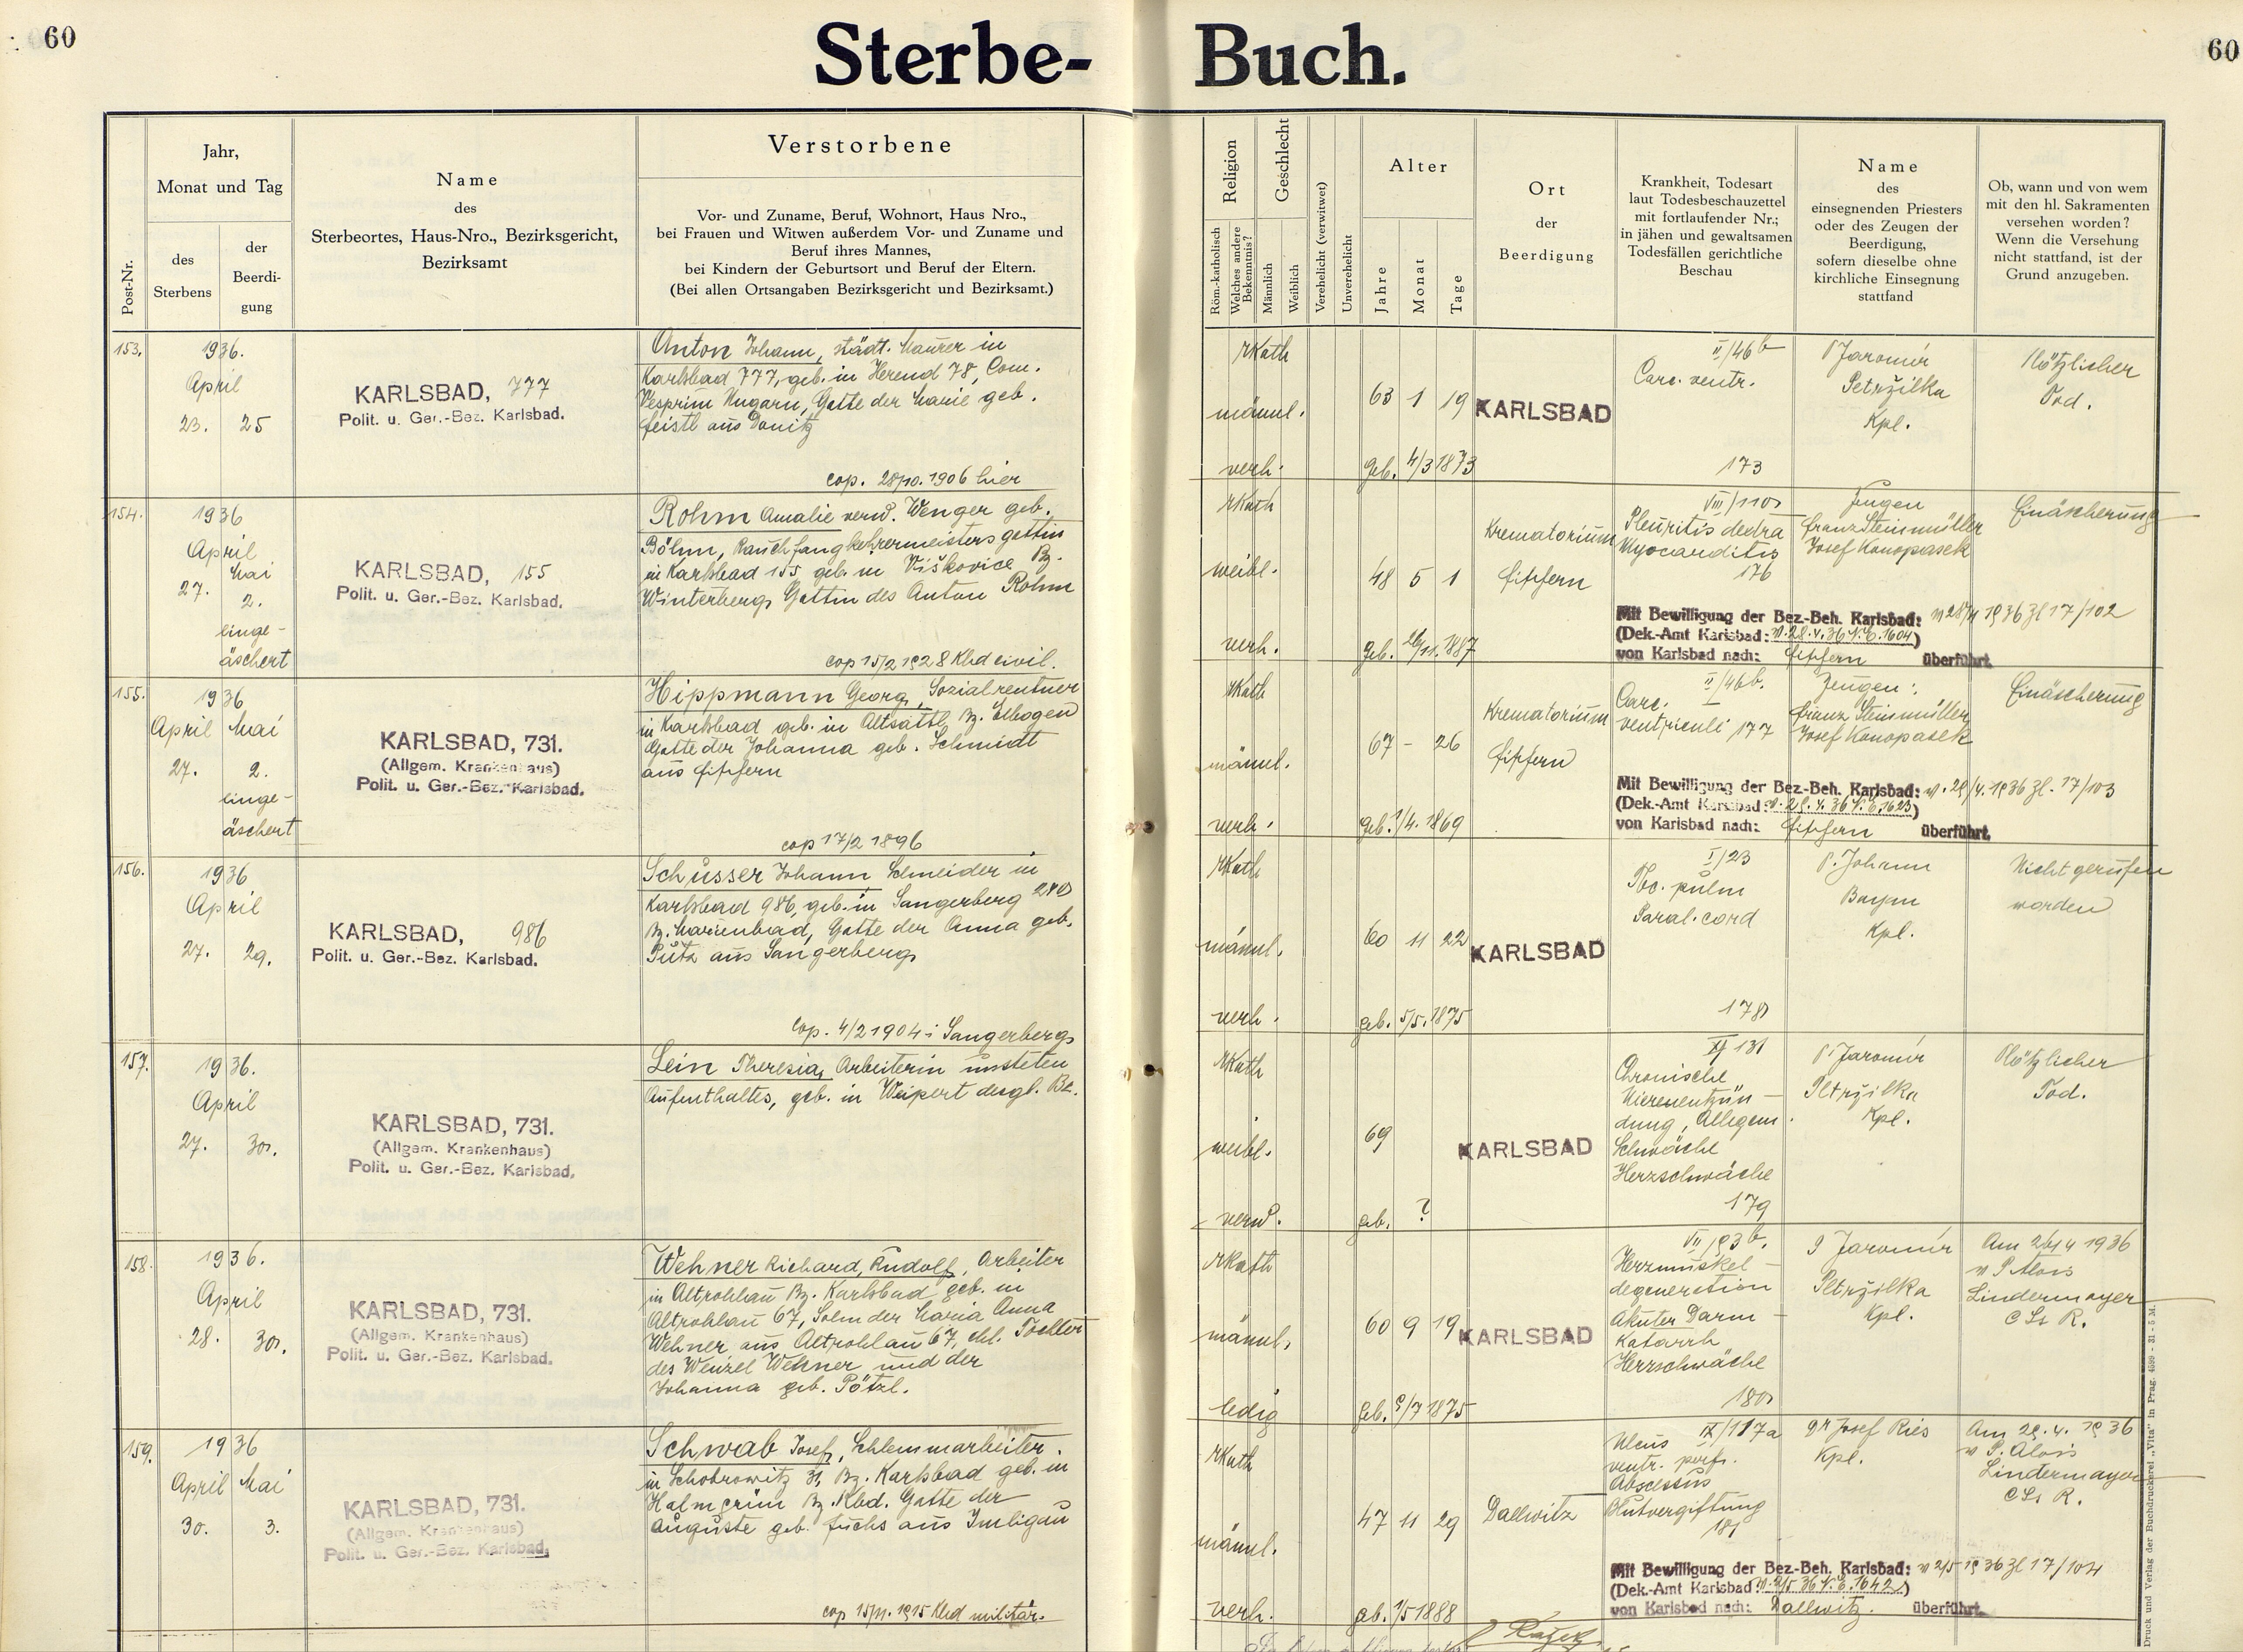 60
Sterbe-
Buch.
60
Post-Nr.
Jahr,
Monat und Tag
des
Sterbens
der
Beerdi-
gung
Name
des
Sterbeortes, Haus-Nro., Bezirksgericht,
Bezirksamt
Verstorbene
Vor- und Zuname, Beruf, Wohnort, Haus Nro.,
bei Frauen und Witwen außerdem Vor- und Zuname und
Beruf ihres Mannes,
bei Kindern der Geburtsort und Beruf der Eltern.
(Bei allen Ortsangaben Bezirksgericht und Bezirksamt.)
Religion
Röm.-katholisch
Welches andere
Bekenntnis?
Geschlecht
Männlich
Weiblich
Verehelicht (verwitwet)
Unverehelicht
Alter
Jahre
Monat
Tage
Ort
der
Beerdigung
Krankheit, Todesart
laut Todesbeschauzettel
mit fortlaufender Nr.;
in jähen und gewaltsamen
Todesfällen gerichtliche
Beschau
Name
des
einsegnenden Priesters
oder des Zeugen der
Beerdigung,
sofern dieselbe ohne
kirchliche Einsegnung
stattfand
Ob, wann und von wem
mit den hl. Sakramenten
versehen worden?
Wenn die Versehung
nicht stattfand, ist der
Grund anzugeben.
153.
1936.
April
23. 25
KARLSBAD, 777
Polit. u. Ger.-Bez. Karlsbad.
Anton Johann, städt. Maurer in
Karlsbad 777, geb. in Herend 78, Com.
Vesprim Ungarn, Gatte der Marie geb.
Feistl aus Donitz
cop. 28/10. 1906 hier
rKath
männl.
verh.
63 1 19
geb. 4/3 1873
KARLSBAD
II/46b
Carc. ventr.
173
P Jaromír
Petržilka
Kpl.
Plötzlicher
Tod.
154.
1936
April
Mai
27. 2.
einge-
äschert
KARLSBAD, 155
Polit. u. Ger.-Bez. Karlsbad.
Rohm Amalie verw. Wenger geb.
Böhm, Rauchfangkehrermeisters gattin
in Karlsbad 155 geb. in Viškovice Bz.
Winterberg, Gattin des Anton Rohm
cop 15/2 1928 Kbd civil.
rKath
weibl.
verh.
48 5 1
geb. 26/11. 1887
Krematorium
Fischern
VIII/110
Pleuritis dextra
Myocarditis
176
Zeugen
Franz Steinmüller
Josef Konopasek
Einäscherung
Mit Bewilligung der Bez.-Beh. Karlsbad: v 28/4 1936 Zl 17/102
(Dek.-Amt Karlsbad: v. 28. 4. 36 N. E. 1604)
von Karlsbad nach: Fischern überführt.
155.
1936
April Mai
27. 2.
einge-
äschert
KARLSBAD, 731.
(Allgem. Krankenhaus)
Polit. u. Ger.-Bez. Karlsbad.
Hippmann Georg, Sozialrentner
in Karlsbad geb. in Altsattl, Bz. Elbogen
Gatte der Johanna geb. Schmidt
aus Fischern
cop 17/2 1896
rKath
männl.
verh.
67 - 26
geb. 1/4. 1869
Krematorium
Fischern
II/46b.
Carc.
ventriculi 177
Zeugen:
Franz Steinmüller
Josef Konopasek
Einäscherung
Mit Bewilligung der Bez.-Beh. Karlsbad: v. 29/4. 1936 Zl. 17/103
(Dek.-Amt Karlsbad: v. 29. 4. 36 N. E. 1623)
von Karlsbad nach: Fischern überführt.
156.
1936
April
27. 29.
KARLSBAD, 986
Polit. u. Ger.-Bez. Karlsbad.
Schüsser Johann Schneider in
Karlsbad 986, geb. in Sangerberg 280
Bz. Marienbad, Gatte der Anna geb.
Pütz aus Sangerberg
cop. 4/2 1904 i Sangerberg
rKath
männl.
verh.
60 11 22
geb. 5/5. 1875
KARLSBAD
I/23
Tbc. pulm
Paral. cord
178
P. Johann
Baym
Kpl.
Nicht gerufen
worden
157.
1936.
April
27. 30.
KARLSBAD, 731.
(Allgem. Krankenhaus)
Polit. u. Ger.-Bez. Karlsbad.
Lein Theresia, Arbeiterin unsteten
Aufenthaltes, geb. in Weipert desgl. Bz.
rKath
weibl.
verw.
69
geb. ?
KARLSBAD
XI 131
Chronische
Nierenentzün-
dung, Allegem.
Schwäche
Herzschwäche
179
P. Jaromír
Petržilka
Kpl.
Plötzlicher
Tod.
158.
1936.
April
28. 30.
KARLSBAD, 731.
(Allgem. Krankenhaus)
Polit. u. Ger.-Bez. Karlsbad.
Wehner Richard, Rudolf, Arbeiter
in Altrohlau Bz. Karlsbad geb. in
Altrohlau 67, Sohn der Maria Anna
Wehner aus Altrohlau 67, ehl. Tochter
des Wenzel Wehner und der
Johanna geb. Pötzl.
rKath
männl.
ledig
60 9 19
geb. 9/7 1875
KARLSBAD
VII/93b.
Herzmuskel-
degeneration
Akuter Darm-
katarrh
Herzschwäche
180
P Jaromír
Petržilka
Kpl.
Am 26/4 1936
v P Alois
Lindermayer
C Ss R.
159.
1936
April Mai
30. 3.
KARLSBAD, 731.
(Allgem. Krankenhaus)
Polit. u. Ger.-Bez. Karlsbad.
Schwab Josef, Schlemmarbeiter.
in Schobrowitz 31, Bz. Karlsbad geb. in
Halmgrün Bz. Kbd. Gatte der
Auguste geb. Fuchs aus Imligau
cop 15/11. 1915 Kbd militär.
rKath
männl.
verh.
47 11 29
geb. 1/5 1888
Dallwitz
Ulcus IX/117a
ventr. perf.
Abscessus
Blutvergiftung
181
Dr Josef Ries
Kpl.
Am 29. 4. 1936
v P. Alois
Lindermayer
C Ss R.
Mit Bewilligung der Bez.-Beh. Karlsbad: v 2/5 1936 Zl 17/104
(Dek.-Amt Karlsbad: v. 2/5 36 N. E. 1642)
von Karlsbad nach: Dallwitz. überführt.
Druck und Verlag der Buchdruckerei „Vita" in Prag. 4599 - 31 - 5 M.